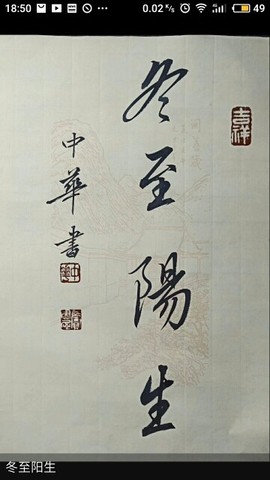 18:50
0.02 K/s
49
吉祥
冬至陽生
中華書
冬至阳生